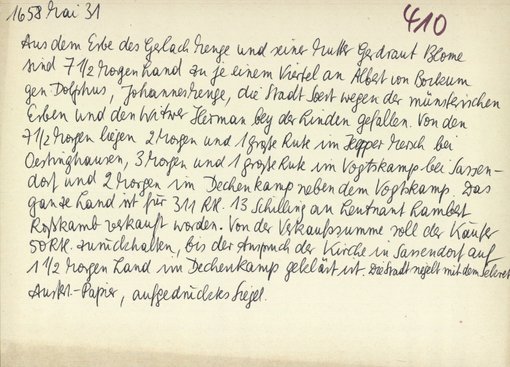 1658 Mai 31
410
Aus dem Erbe des Gerlach Menge und seiner Mutter Gerdraut Blome
sind 7 1/2 Morgen Land zu je einem Viertel an Albert von Bockum
gen. Dolphus, Johannes Menge, die Stadt Soest wegen der münsterischen
Erben und den Witwer Herman bey der Linden gefallen. Von den
7 1/2 Morgen liegen 2 Morgen und 1 große Rute im Mersch bei
Oestinghausen, 3 Morgen und 1 große Rute im Vogtskamp bei Sassen-
dorf und 2 Morgen im Dechenkamp neben dem Vogtskamp. Das
ganze Land ist für 311 Rtl. 13 Schilling an Leutnant Lambert
Roßkamb verkauft worden. Von der Verkaufssumme soll der Käufer
50 Rtl. zurückhalten, bis der Anspruch der Kirche in Sassendorf auf
1 1/2 Morgen Land im Dechenkamp geklärt ist. Die Stadt siegelt mit dem Sekret
Ausf.-Papier, aufgedrücktes Siegel.